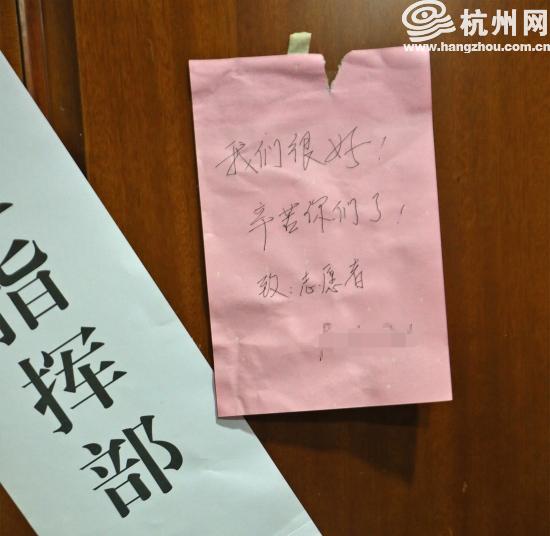 杭州网
www.hangzhou.com.cn
我们很好！
辛苦你们了！
致：志愿者
指挥部